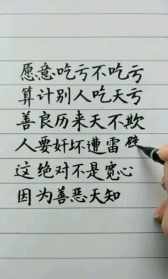 愿意吃亏不吃亏
算计别人吃天亏
善良历来天不欺
人要奸坏遭雷劈
这绝对不是宽心
因为善恶天知